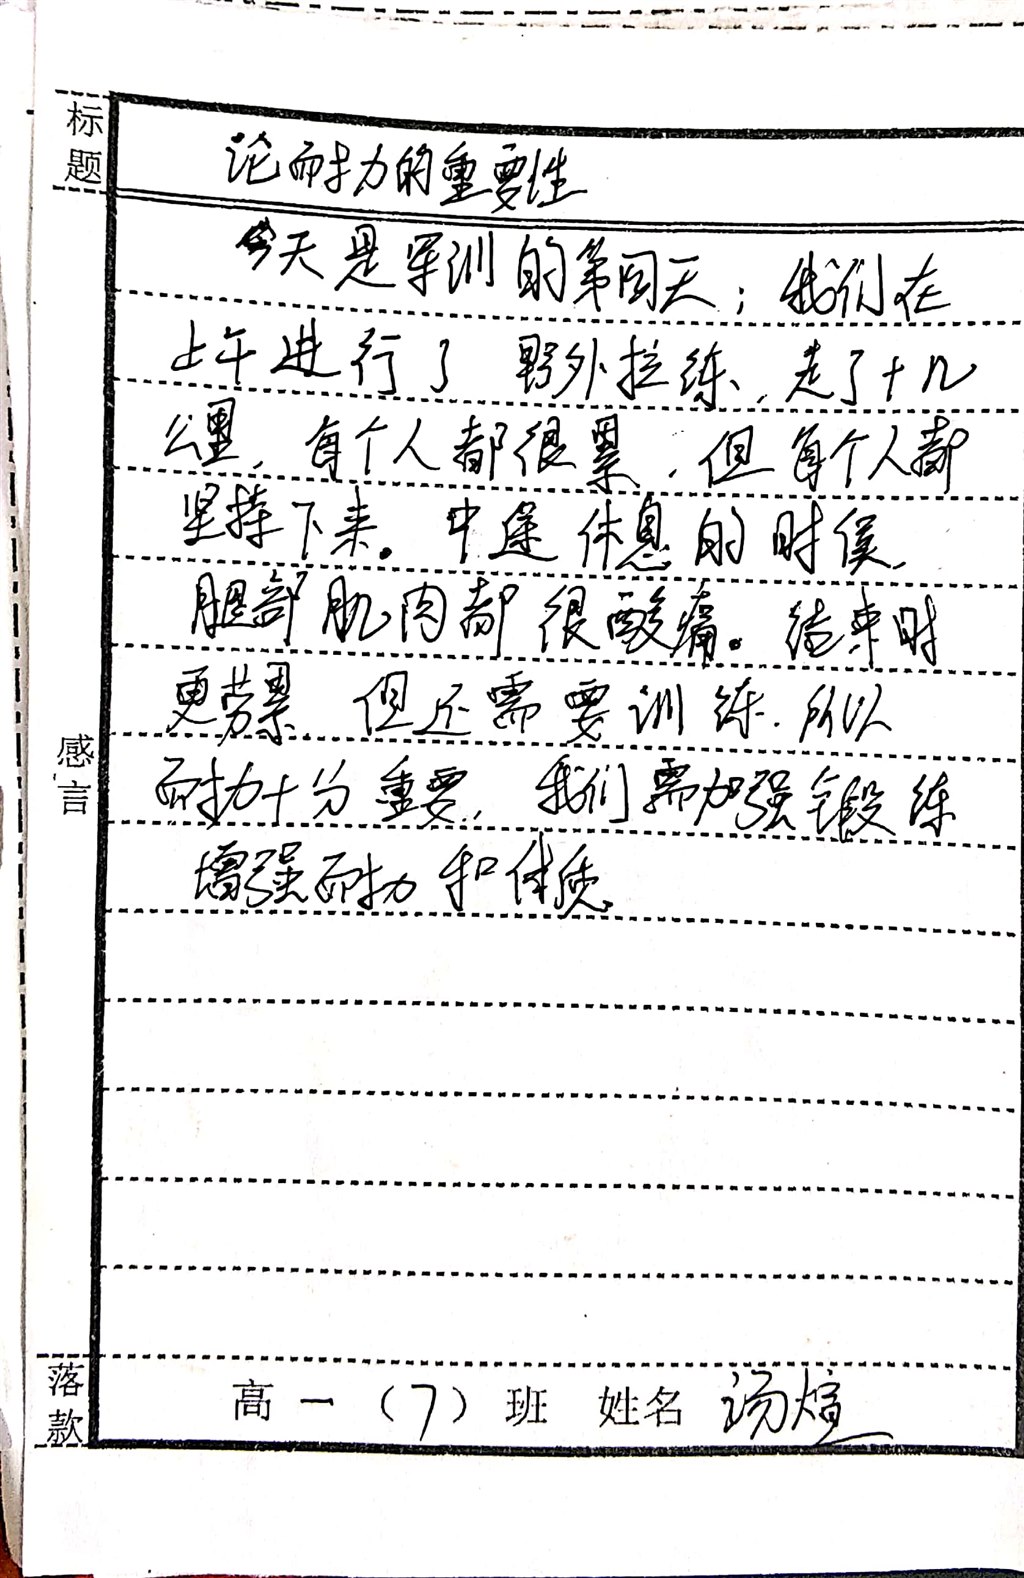 标题
论耐力的重要性
今天是军训的第四天；我们在
上午进行了野外拉练，走了十几
公里，每个人都很累，但每个人都
坚持下来。中途休息的时候，
腿部肌肉都很酸痛。结束时
更劳累，但还需要训练，所以
耐力十分重要，我们需加强锻练
增强耐力和体质。
感言
落款
高一（7）班 姓名 汤煊